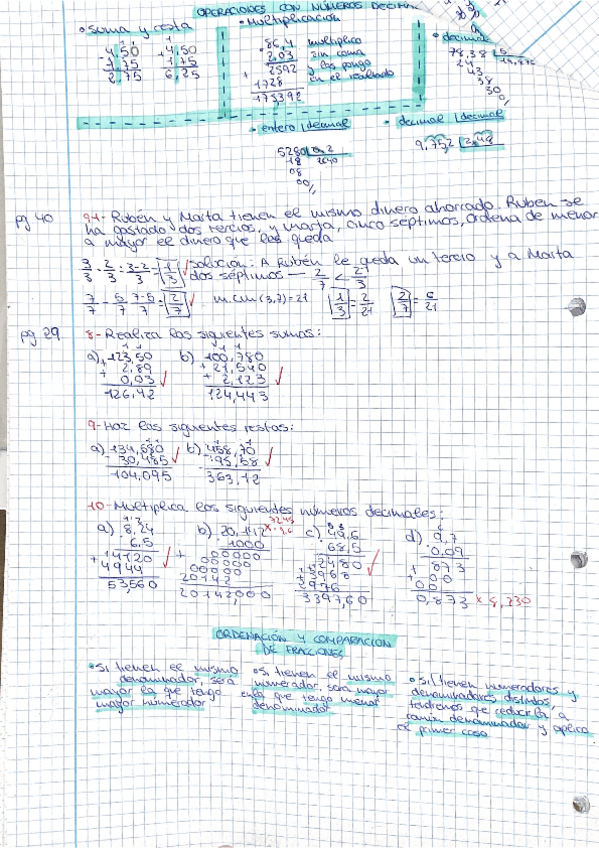 OPERACIONES CON NÚMEROS DECIM
• Suma y resta
4,50
-1,75
2,75
4,50
1,75
6,25
• Multiplicación
86,4
2,03
2592
1728
175392
multiplico
sin coma
y las pongo
en el resultado
• decimal
78,38 | 5
24
43
38
30
0
• entero | decimal
5280 | 2,2
18
08
00
2640
• decimal | decimal
9,752 | 2,42
pg 40
91- Rubén y Marta tienen el mismo dinero ahorrado. Ruben se
ha gastado dos tercios, y marta, cinco séptimos, ordena de menor
a mayor el dinero que les queda
3/3 - 2/3 = 3-2/3 = 1/3 Solución: A Rubén le queda un tercio y a Marta
dos séptimos — 2/7 <
7/7 - 5/7 = 7-5/7 = 2/7 m.cm (3,7) = 21 1/3 = 7/21 2/7 = 6/21
pg 29
8- Realiza las siguientes sumas:
a) 123,50
+ 2,89
+ 0,03
126,42
b) 100,780
+ 21,540
+ 2,123
124,443
9- Haz las siguientes restas:
a) 134,580
- 30,485
104,095
b) 458,70
- 95,58
363,12
10- Multiplica los siguientes números decimales:
a) 8,24
6,5
+ 4120
4944
53,560
b) 20,142
1000
+ 00000
00000
00000
20142
20142,000
c) 49,6
68,5
2480
3968
2976
3397,60
d) 9,7
0,09
+ 873
00
00
0,873
ORDENACIÓN Y COMPARACION
DE FRACCIONES
• Si tienen el mismo
denominador, será
mayor la que tengo
mayor numerador
• Si tienen el mismo
numerador, será mayor
ella que tengo menor
denominador
• Si tienen numeradores y
denominadores distintos,
tendremos que reducirlo a
común denominador y aplico
el primer caso